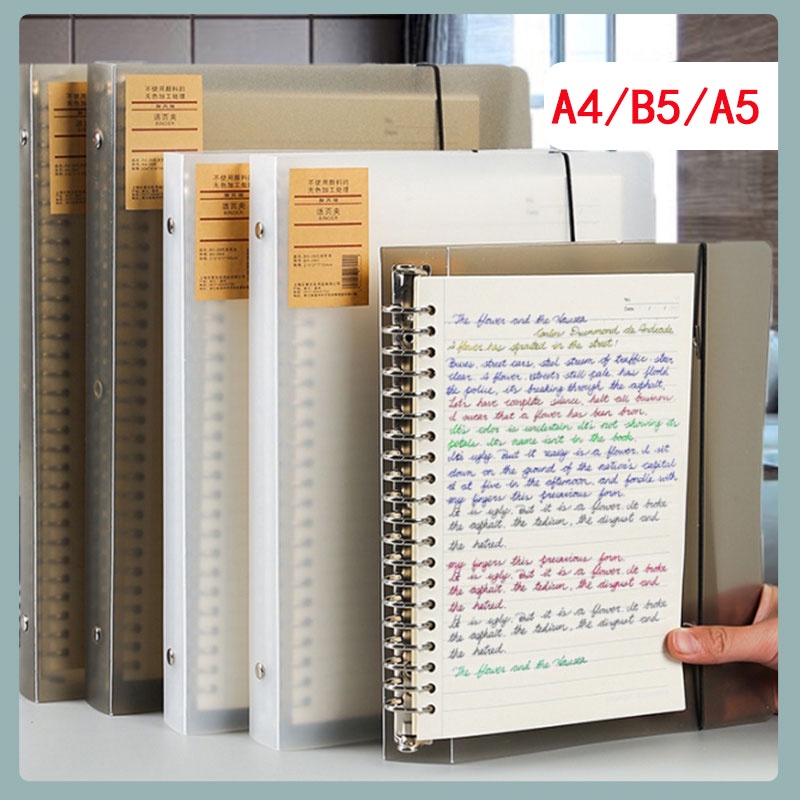 A4/B5/A5
不使用颜料的
无色加工处理
活页夹
BINDER
不使用颜料的
无色加工处理
活页夹
BINDER
不使用颜料的
无色加工处理
活页夹
BINDER
No.
Date
The flower and the Nausea
Carlos Drummond de Andrade
A flower has sprouted in the street!
Buses, street cars, steel stream of traffic steer
clear. A flower, still pale, has
the police, it's breaking through the asphalt.
Let's have complete silence, halt all business
I swear that a flower has been bron.
It's color is uncertain it's not showing its
petals. Its name isn't in the book.
It's ugly. But it really is a flower. I sit
down on the ground of the nation's capital
at five in the afternoon, and fondle with
my fingers this precarious form.
It is ugly. But it is a flower. It broke
the asphalt, the tedium, the disgust and
the hatred.
my fingers this precarious form.
It is ugly. But it is a flower. It broke
the asphalt, the tedium, the disgust and
the hatred.
It is ugly. But it is a flower. It broke
the asphalt, the tedium, the disgust and
the hatred.
The flower and the Nausea